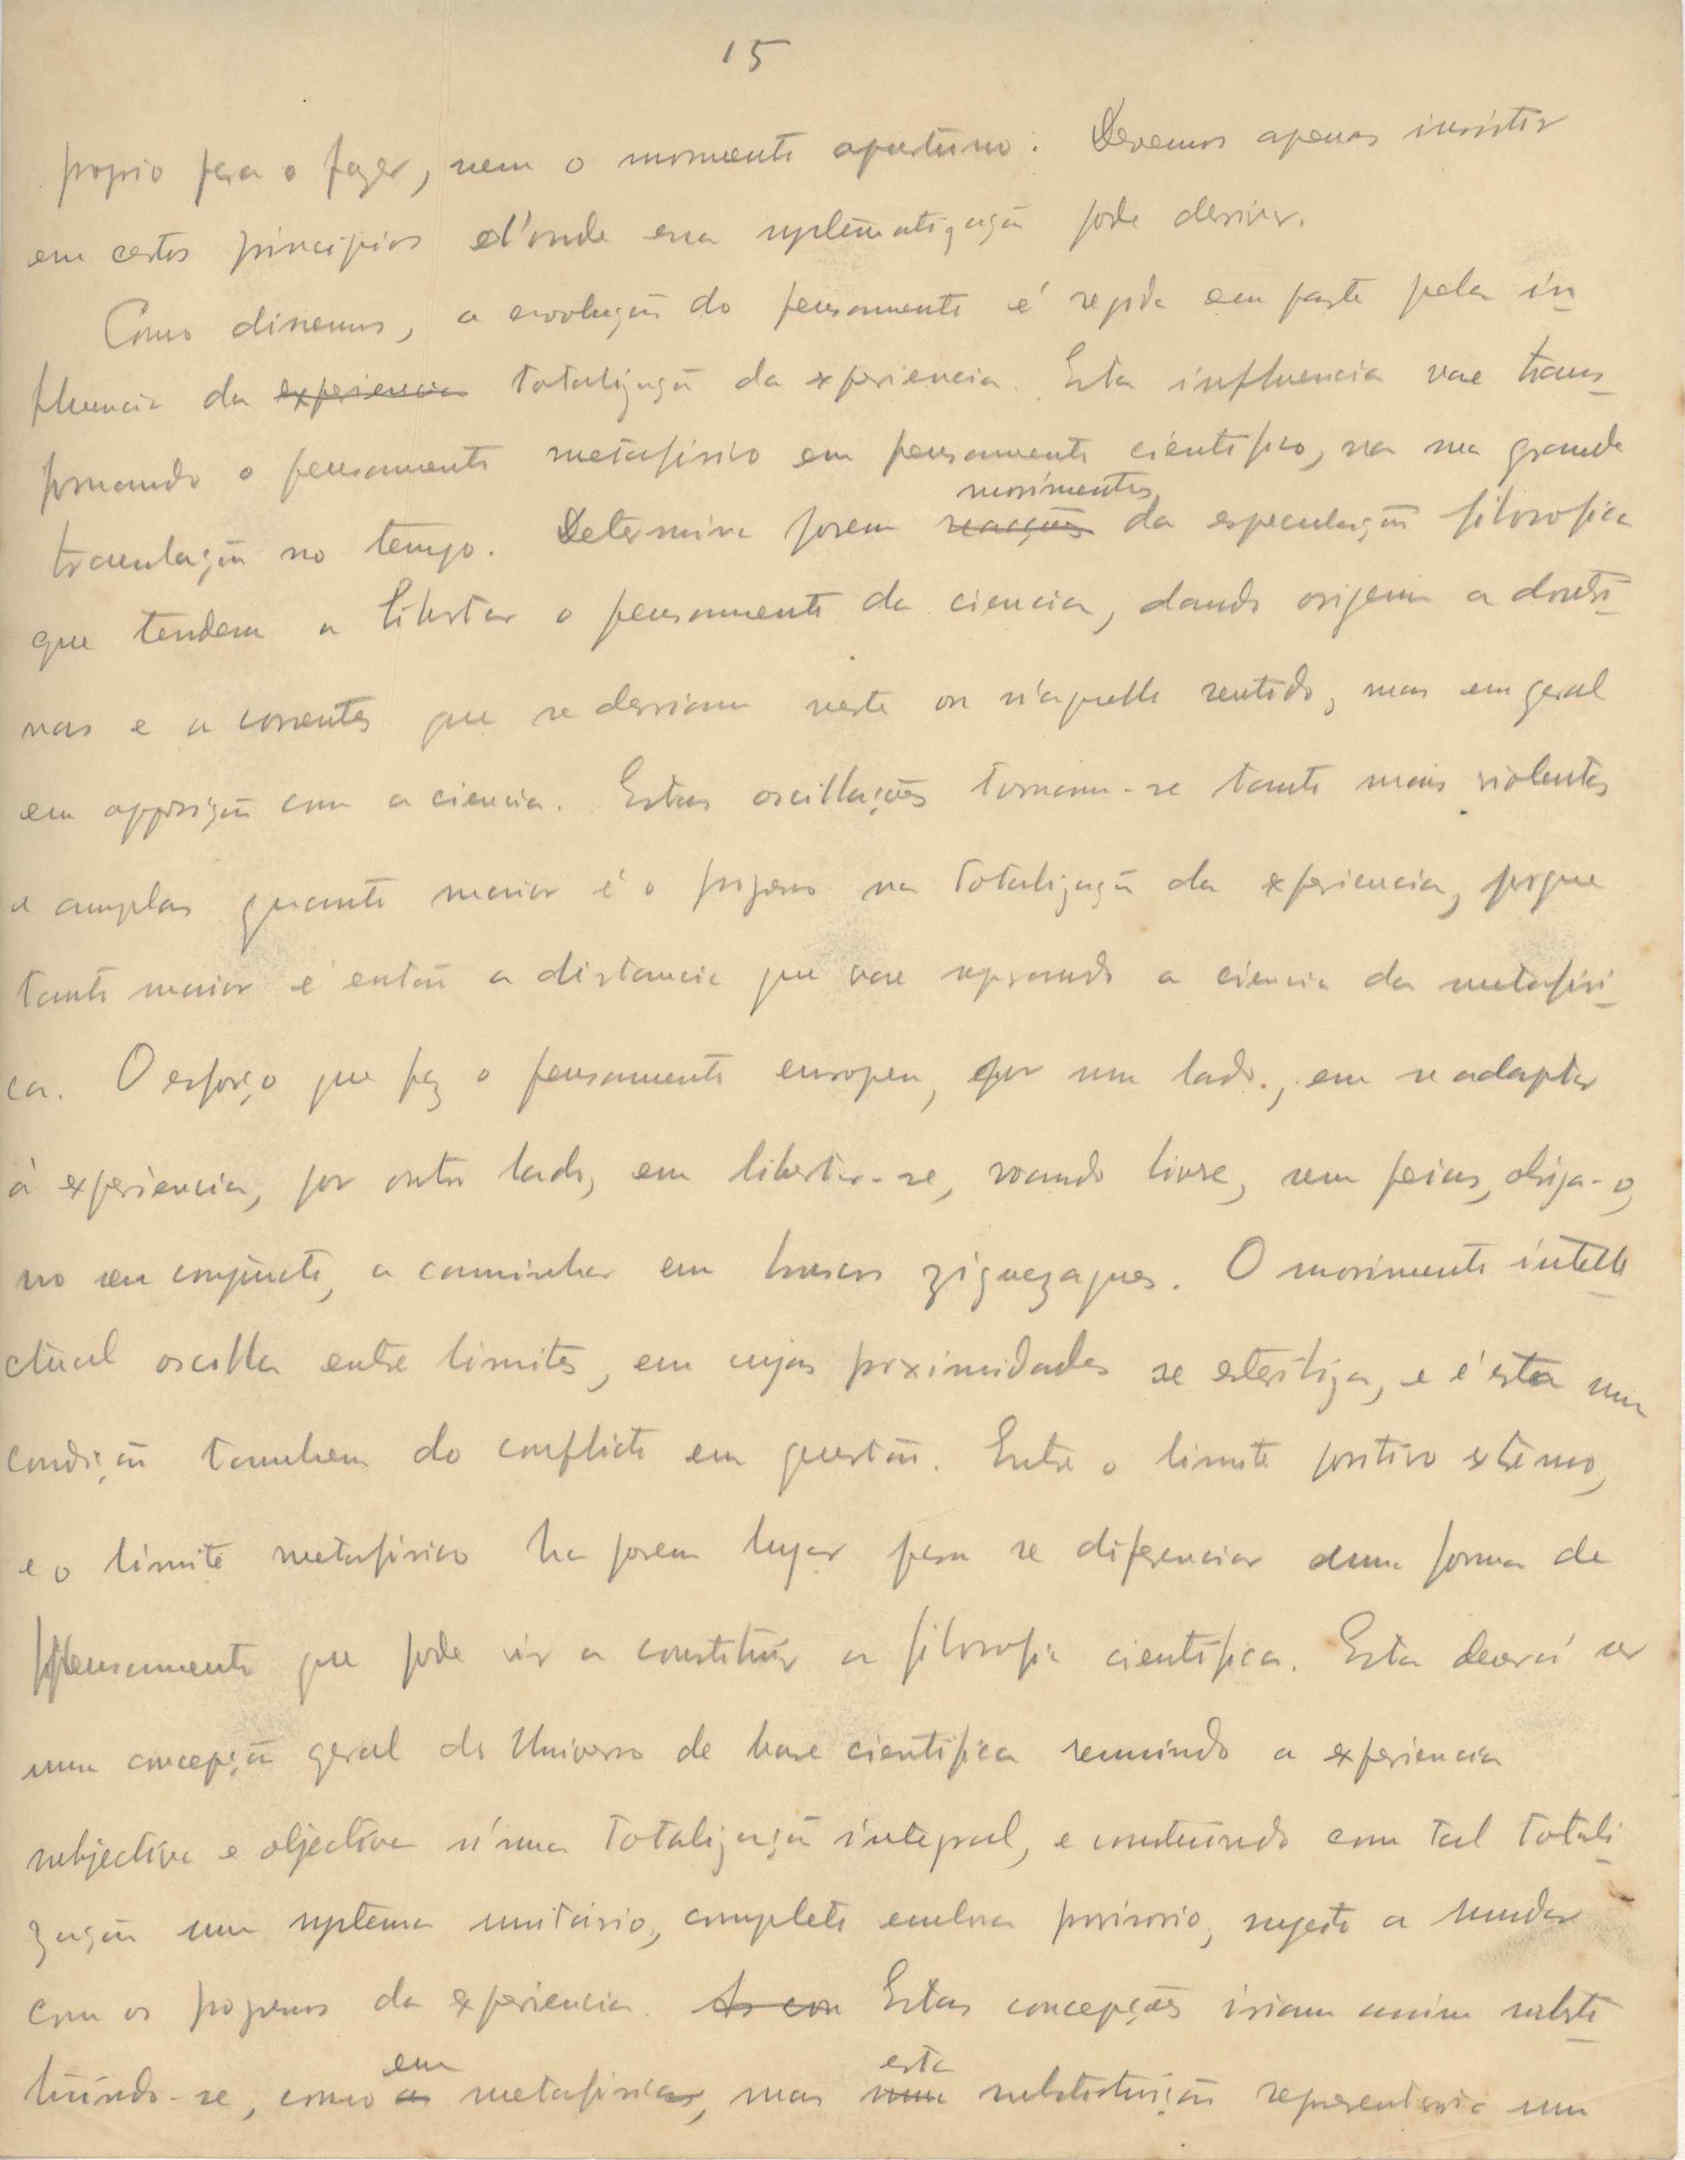 15
proprio para o fazer, nem o momento oportuno. Devemos apenas insistir
em certos principios d'onde essa systematização pode derivar.
Como dissemos, a evolução do pensamento é regida em parte pela in-
fluencia da experiencia totalização da experiencia. Esta influencia vae trans-
formando o pensamento metafisico em pensamento cientifico, na sua grande
translação no tempo. Determina porem reacções movimentos da especulação filosofica
que tendem a libertar o pensamento da ciencia, dando origem a doutri-
nas e a correntes que se desviam neste ou n'aquelle sentido, mas em geral
em opposição com a ciencia. Estas oscillações tornam-se tanto mais violentas
e amplas quanto maior é o progresso na totalização da experiencia, porque
tanto maior é então a distancia que vae separando a ciencia da metafisi-
ca. O esforço que faz o pensamento europeu, por um lado, em se adaptar
á experiencia, por outro lado, em libertar-se, voando livre, sem peias, obriga-o,
no seu conjuncto, a caminhar em bruscos ziguezagues. O movimento intelle-
ctual oscilla entre limites, em cujas proximidades se esteriliza, e é esta uma
condição tambem do conflicto em questão. Entre o limite positivo extremo,
e o limite metafisico ha porem lugar para se diferenciar uma forma de
pensamento que pode vir a constituir a filosofia cientifica. Esta deverá ser
uma concepção geral do Universo de base cientifica reunindo a experiencia
subjectiva e objectiva n'uma totalização integral, e construindo com tal totali-
zação um systema unitario, completo embora provisorio, sujeito a mudar
com os progressos da experiencia. As con Estas concepções iriam assim substi-
tuindo-se, como as em metafisica, mas uma esta substituição representaria um